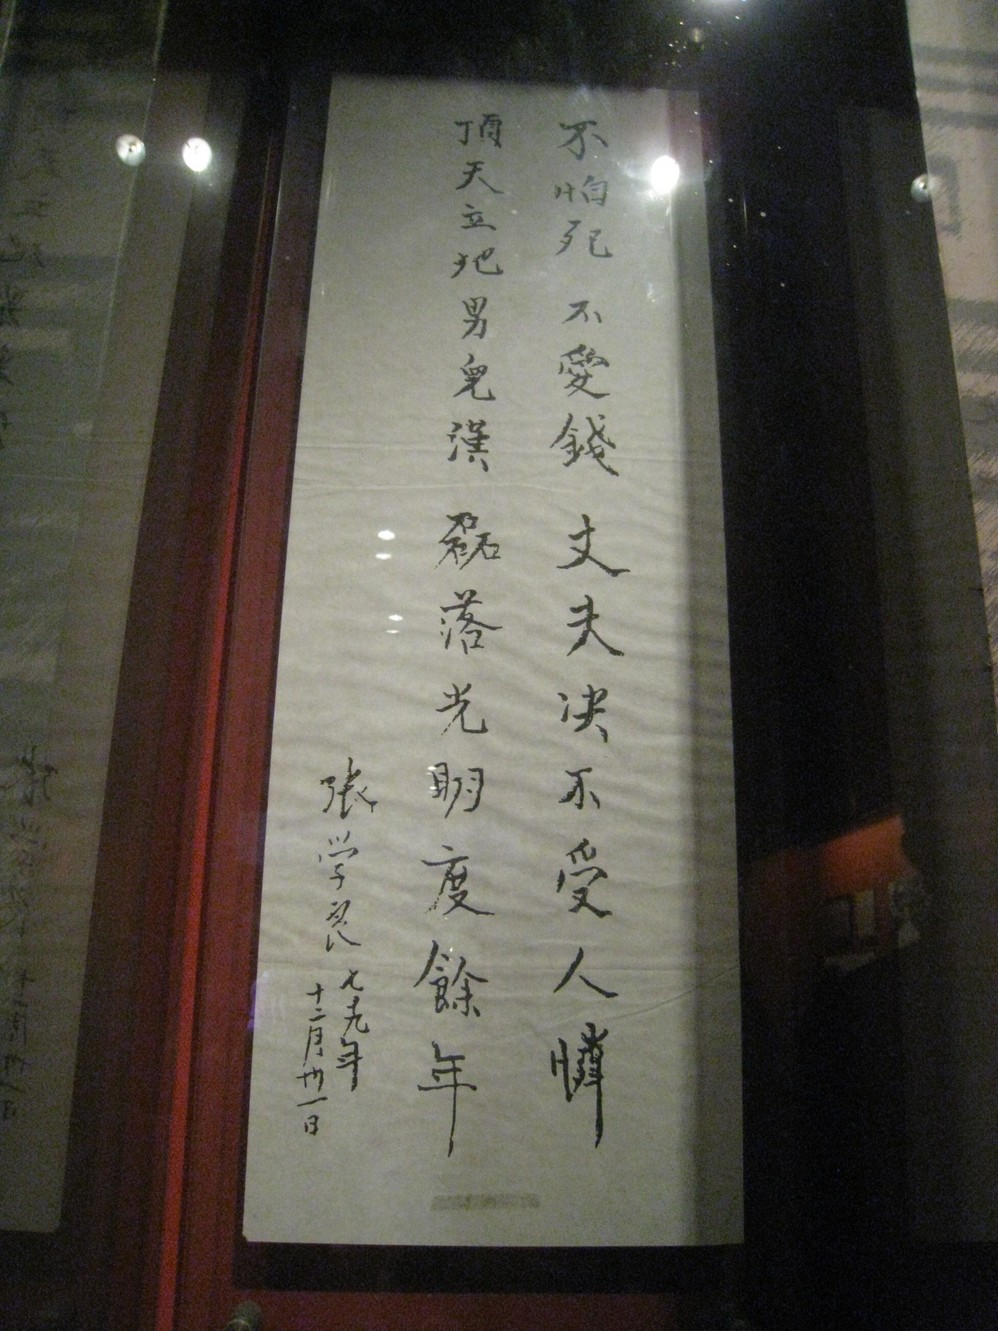 不怕死 不愛錢 丈夫決不受人憐
頂天立地男兒漢 磊落光明度餘年
張学良 七十九年
十二月卅一日